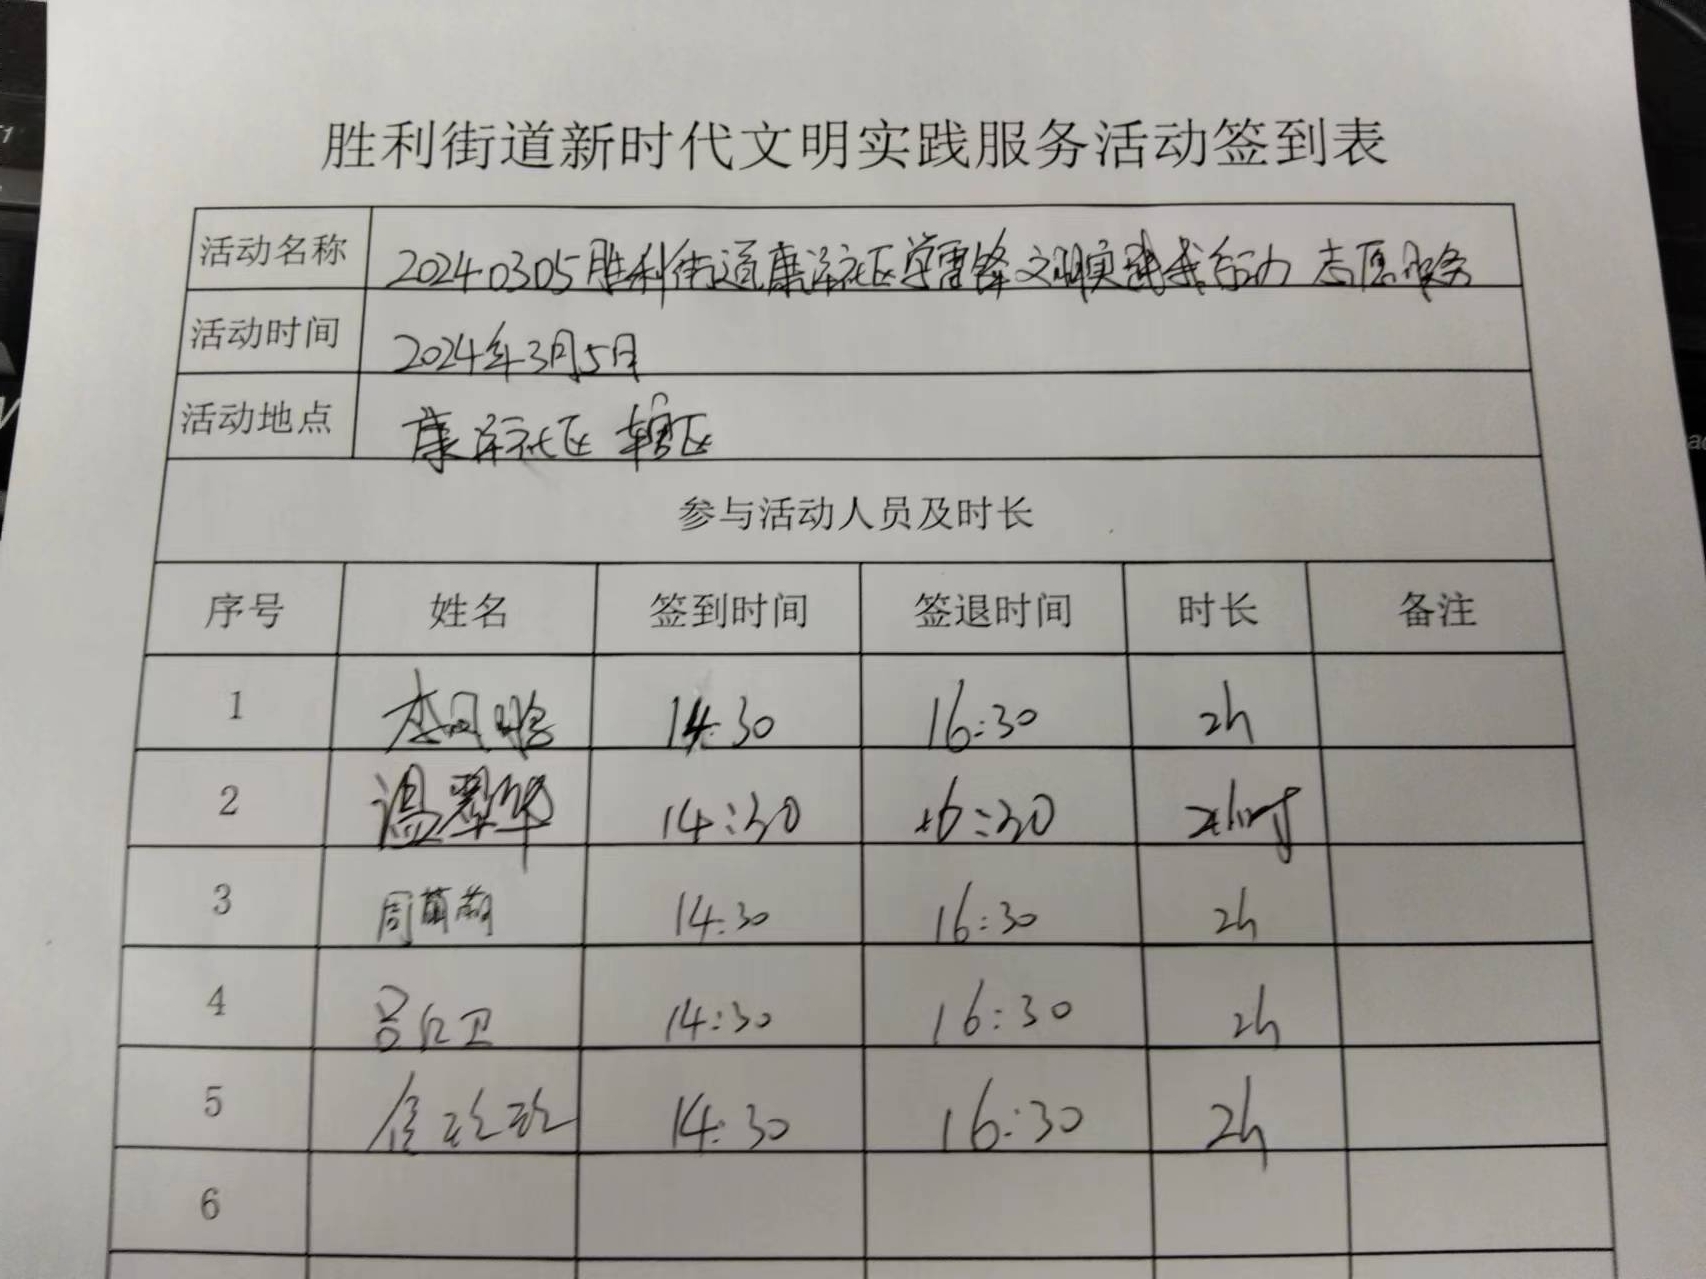 胜利街道新时代文明实践服务活动签到表
活动名称 20240305胜利街道康泽社区学雷锋文明实践我行动 志愿服务
活动时间 2024年3月5日
活动地点 康泽社区 辖区
参与活动人员及时长
序号 姓名 签到时间 签退时间 时长 备注
1 李凤鸣 14:30 16:30 2h
2 温翠华 14:30 16:30
3 周萌萌 14:30 16:30 2h
4 吕红卫 14:30 16:30 2h
5 14:30 16:30 2h
6